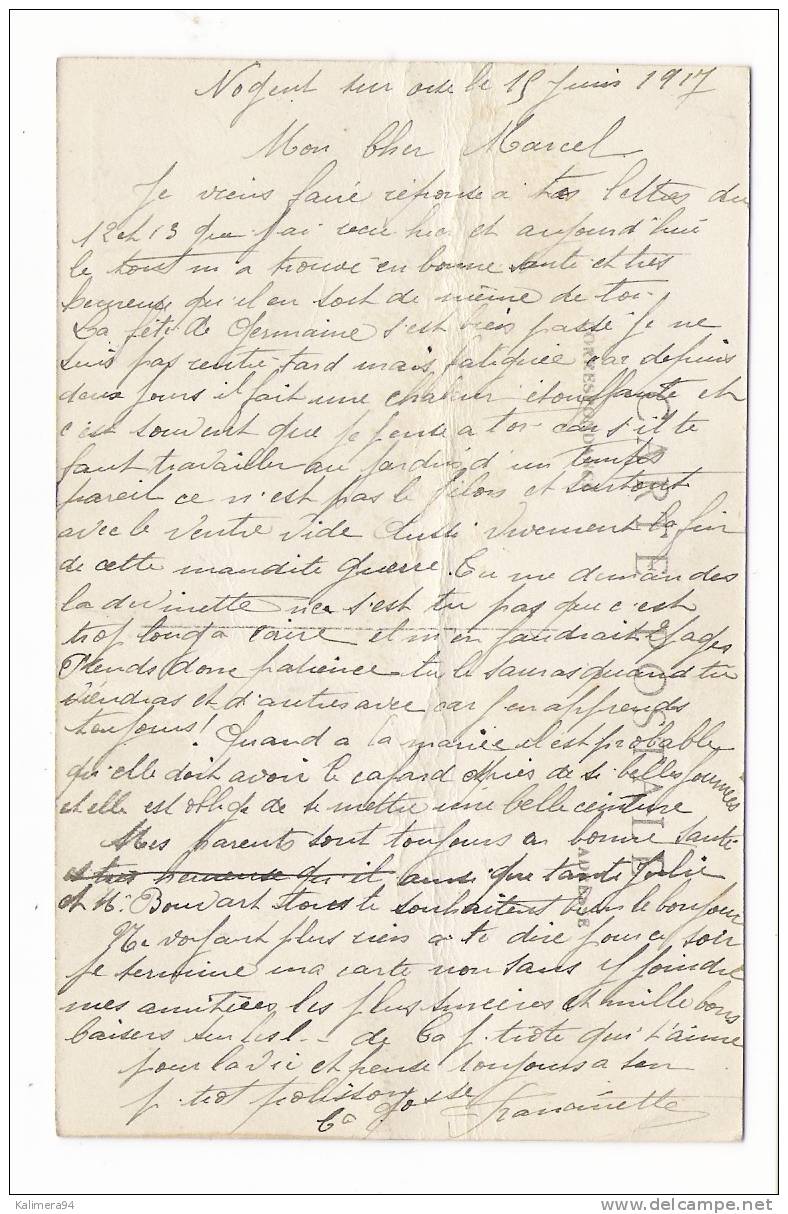 Nogent sur oise le 15 Juin 1917
Mon Cher Marcel
Je viens faire réponse a tes lettres du
12 et 13 que j'ai recu hier et aujourd'hui
le tout m'a trouvé en bonne santé et très
heureuse qu'il en soit de même de toi.
La fête de Germaine s'est bien passé je ne
suis pas rentré tard mais fatiguée car depuis
deux jours il fait une chaleur étouffante et
c'est souvent que je pense a toi car s'il te
faut travailler au jardin d'un temps
pareil ce n'est pas le filon et surtout
avec le ventre vide Aussi vivement la fin
de cette maudite guerre. Tu me demandes
la devinette ne s'est tu pas que c'est
trop long a écrire et m'en faudrait pages
Prends donc patience tu le sauras quand tu
viendras et d'autres avec car j'en apprends
toujours! Quand a la mariée il est probable
qu'elle doit avoir le cafard après de si belles journées
et elle est oblige de se mettre une belle ceinture
Mes parents sont toujours en bonne santé
et très heureuse qu'il ainsi que tante Julie
et M. Bouvart tous te souhaitent bien le bonjour
Ne voyant plus rien a te dire pour ce soir
je termine ma carte non sans y joindre
mes amitiées les plus sincères et mille bons
baisers sur tes l... de ta p. tiote qui t'aime
pour la vie et pense toujours a son
p. tiot polisson
ta gosse Francinette
CARTE POSTALE
CORRESPONDANCE
ADRESSE
Kalimera94
http://www.delcampe.net